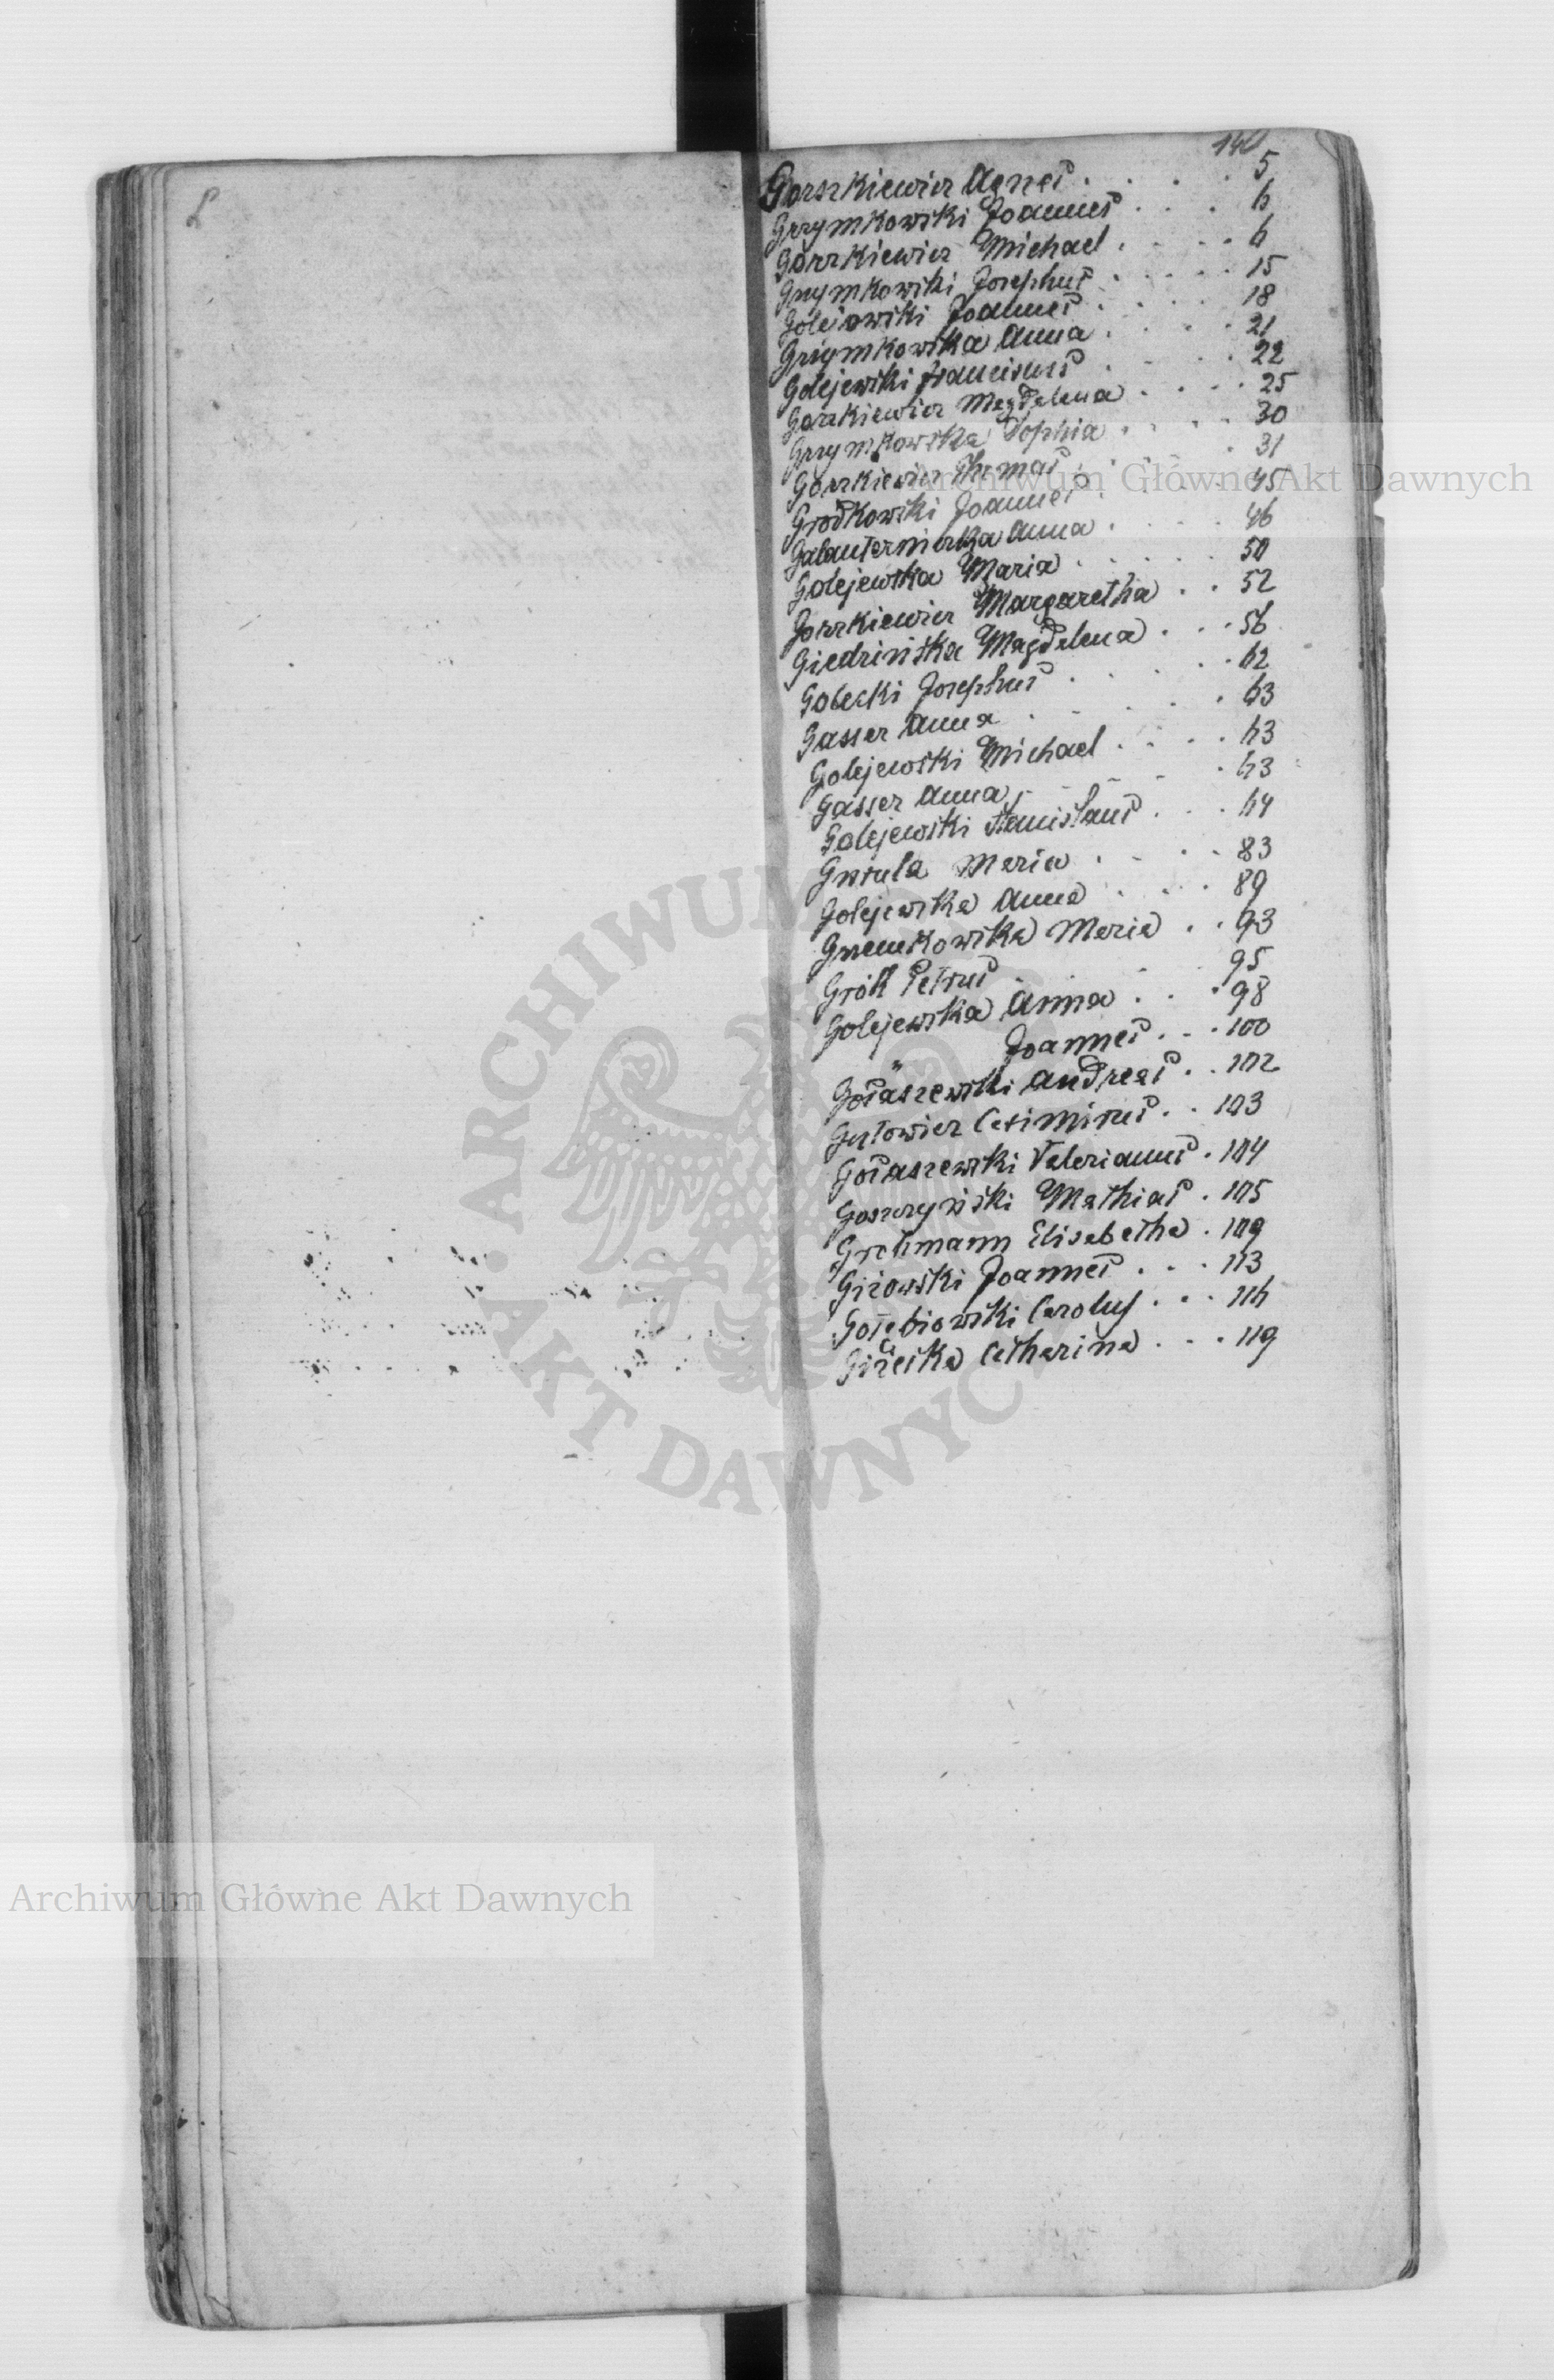 140
Gorszkiewicz Agnes . . . . 5
Grzymkowski Joannes . . . 6
Gorzkiewicz Michael . . . . 6
Grzymkowski Josephus . . . . . 15
Golejowski Joannes . . . . 18
Grzymkowska Anna . . . . 21
Golejewski Franciscus . . . 22
Gorzkiewicz Magdalena . . . . 25
Grzymkowska Sophia . . . . 30
Gorzkiewicz Thomas . . . . 31
Grodkowski Joannes . . . . 45
Galanterniczka Anna . . . . 46
Golejewska Maria . . . . . 50
Gorzkiewicz Margaretha . . 52
Giedzińska Magdalena . . . 56
Golecki Josephus . . . . . 62
Gasser Anna . . . . . 63
Golejewski Michael . . . . 63
Gasser Anna . . . . 63
Golejewski Stanislaus . . . 64
Maria . . . . 83
Golejewska Anna . . . 89
Grzemkowska Maria . . 93
Grök Petrus . . . 95
Golejewska Anna . . . 98
" Joannes . . . 100
Gołaszewski Andreas . . 102
Gutowicz Casimirus . . 103
Gołaszewski Valerianus . 104
Goszczyński Mathias . 105
Grohmann Elisabetha . 109
Giżowski Joannes . . . 113
Gołębiowski Carolus . . . 116
Catharina . . . 119
Archiwum Główne Akt Dawnych
ARCHIWUM
AKT DAWNYCH
Archiwum Główne Akt Dawnych